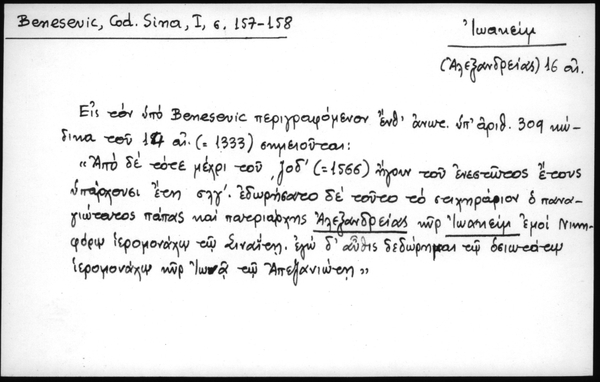 Benesevic, Cod. Sina, I, σ. 157-158
Ἰωακείμ
(Ἀλεξανδρείας) 16 αἰ.
Εἰς τόν ὑπό Benesevic περιγραφόμενον ἔνθ' ἀνωτ. ὑπ' ἀριθ. 309 κώ-
δικα τοῦ 14 αἰ. (= 1333) σημειοῦται:
"Ἀπό δέ τότε μέχρι τοῦ ͵ζοδ' (=1566) ἤγουν τοῦ ἐνεστῶτος ἔτους
ὑπάρχουσι ἔτη σλγ'. ἐδωρήσατο δέ τοῦτο τό στιχηράριον ὁ πανα-
γιώτατος πάπας καί πατριάρχης Ἀλεξανδρείας κῦρ Ἰωακείμ ἐμοί Νικη-
φόρῳ ἱερομονάχῳ τῷ Σιναΐτῃ. ἐγώ δ' αὖθις δεδώρημαι τῷ ὁσιωτάτῳ
ἱερομονάχῳ κῦρ τῷ"